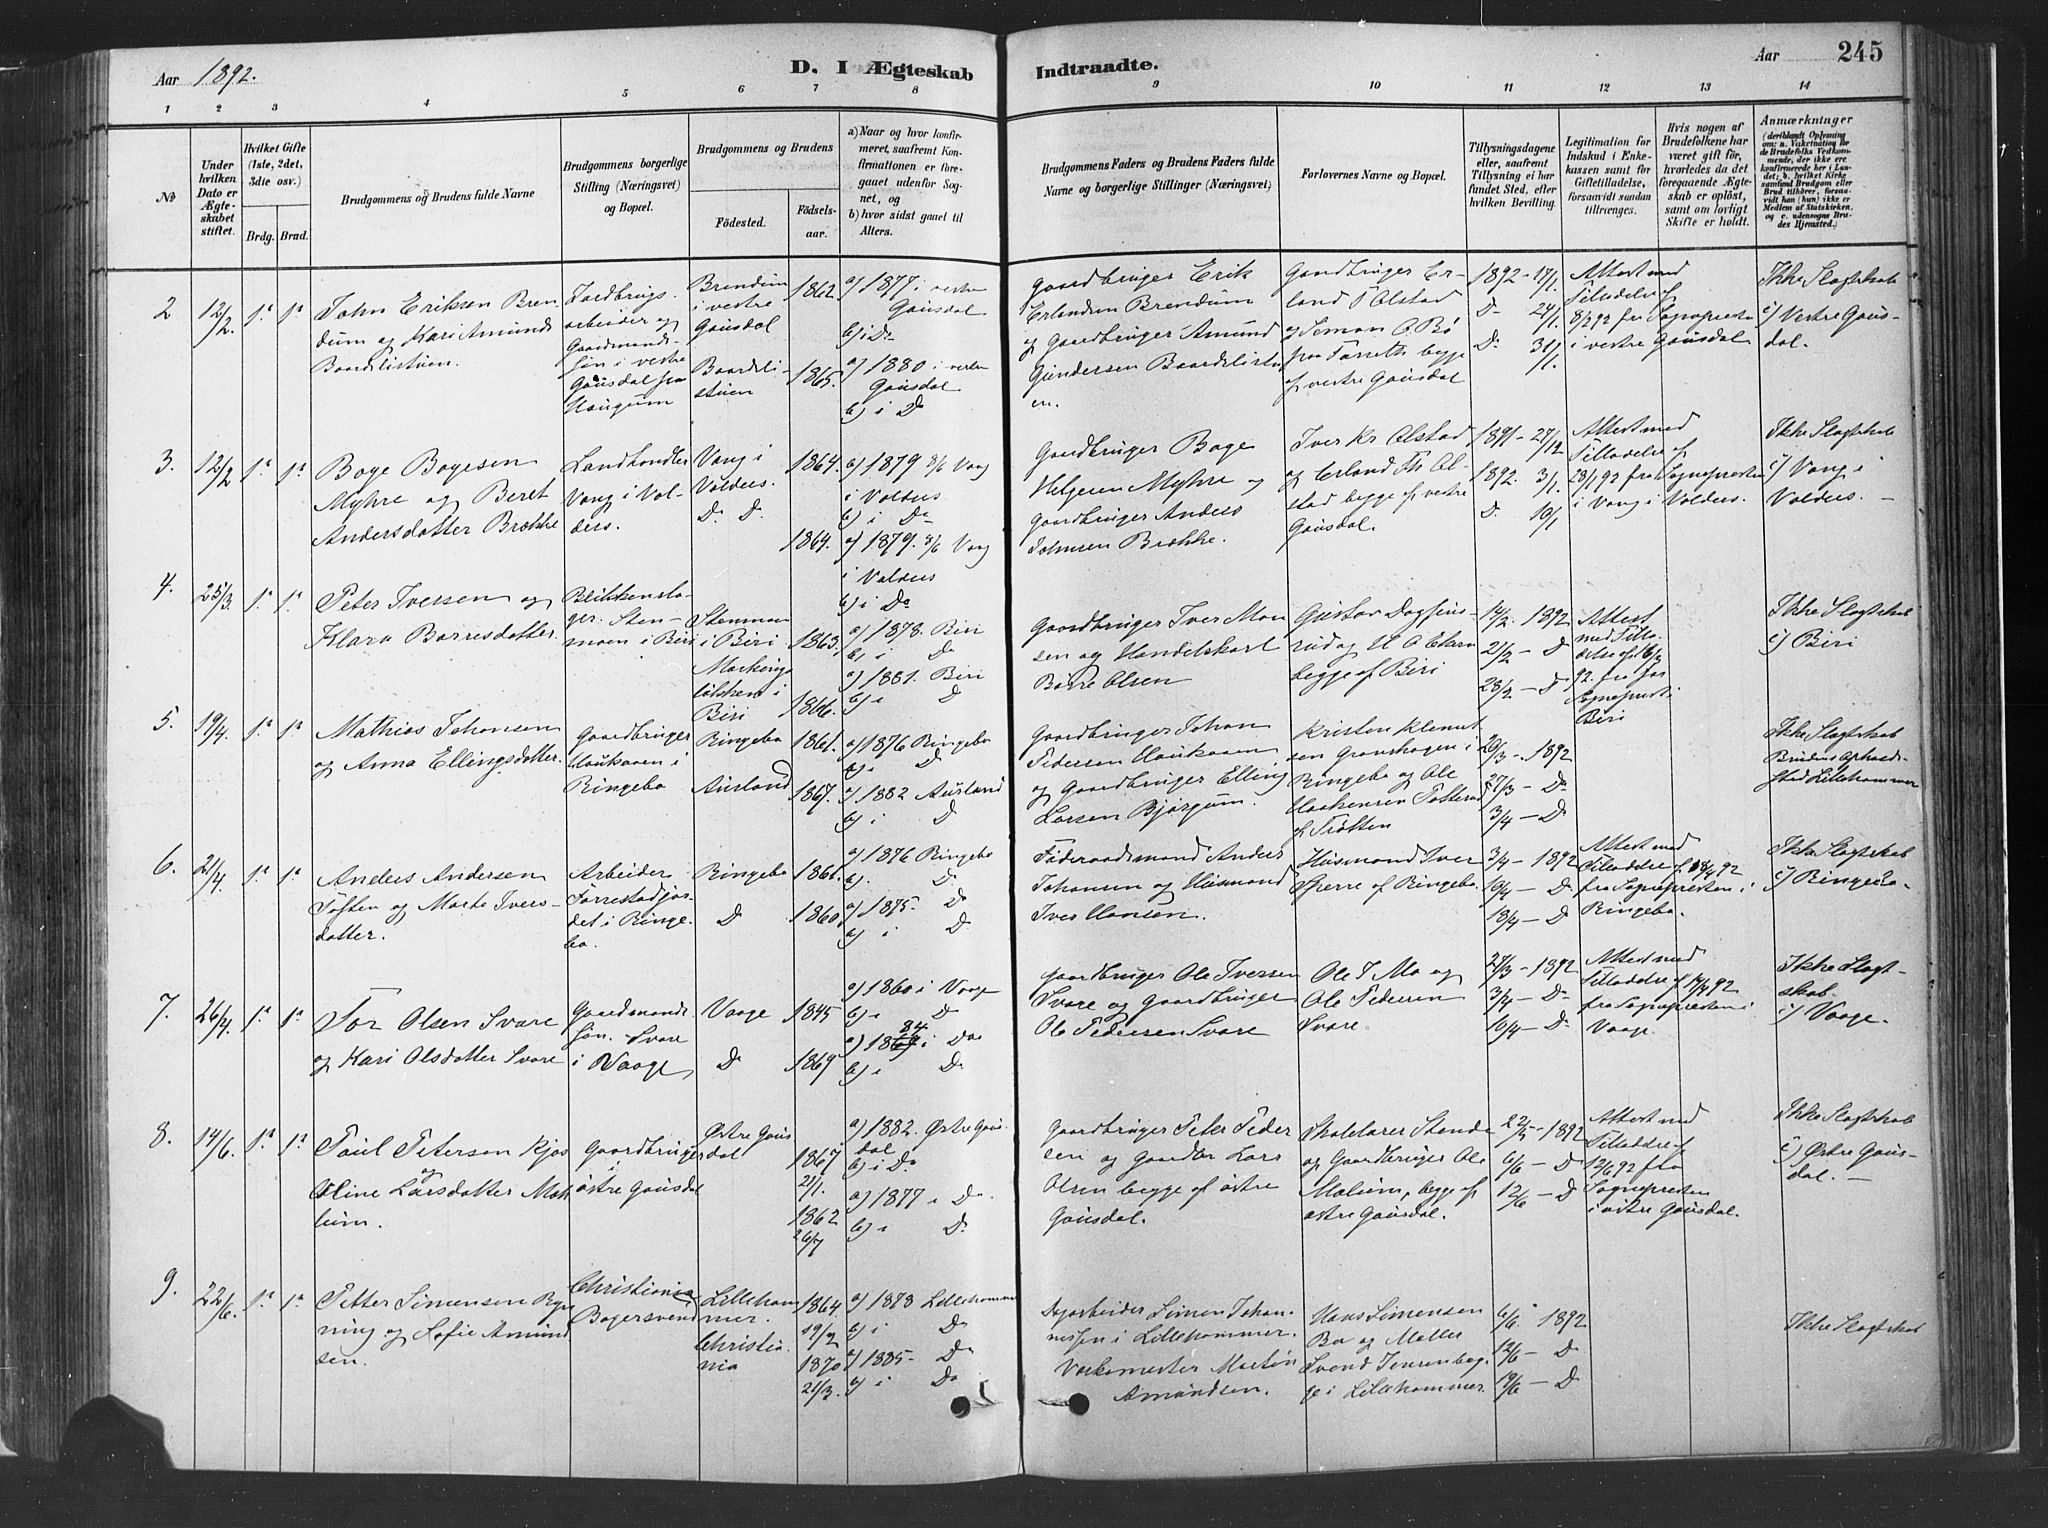 Aar 1892. D. I Ægteskab Indtraadte. Aar 245
1 2 3 4 5 6 7 8 9 10 11 12 13 14
No
Under hvilken Dato er Ægteskabet stiftet.
Hvilket Gifte (1ste, 2det, 3die osv.)
Brdg. Brud.
Brudgommens og Brudens fulde Navne
Brudgommens borgerlige Stilling (Næringsvei) og Bopæl.
Brudgommens og Brudens
Fødested. Fødselsaar.
a) Naar og hvor konfirmeret, saafremt Konfirmationen er foregaaet udenfor Sognet, og
b) hvor sidst gaaet til Alters.
Brudgommens Faders og Brudens Faders fulde Navne og borgerlige Stillinger (Næringsvei)
Forlovernes Navne og Bopæl.
Tillysningsdagene eller, saafremt Tillysning ei har fundet Sted, efter hvilken Bevilling.
Legitimation for Indskud i Enkekassen samt for Giftetilladelse, forsaavidt saadan tiltrænges.
Hvis nogen af Brudefolkene har været gift før, hvorledes da det foregaaende Ægteskab er opløst, samt om lovligt Skifte er holdt.
Anmærkninger
2 12/2. 1ª 1ª
John Eriksen Bren
dum og Kari Amunds
Baardslistuen.
Jordbrugs-
arbeider og
Gaardmands-
søn i vestre
Gausdal fra
Haugum
Brendum
i vestre
Gausdal
Baardsli-
stuen
1862.
1865.
a) 1877 i vestre
Gausdal
b) i Do
a) 1880 i vestre
Gausdal
b) i D
Gaardbruger Erik
Erlandsen Brendum
og Gaardbruger Amund
Gundersen Baardslistu
en.
Gaardbruger Er-
land T Olstad
og Simon O. Bø
begge
af vestre Gausdal
1892 - 17/1.
D - 24/1.
D. 31/1.
Attest med
Tilladelse af
8/2 92 fra Sognepresten
i vestre Gausdal
Ikke Slægtskab
c) Vestre Gaus-
dal.
3. 12/2 1ª 1ª
Boye Boyesen
Myhre og Beret
Andersdatter Brække
Landhandler
Vang i Val-
ders.
Vang i
Valders.
D. D.
1864.
1864.
a) 1879 8/6 Vang
i Valders
b) i Do
a) 1879. 8/6 Vang
i Valders
b) i Do
Gaardbruger Boye
Helgesen Myhre og
Gaardbruger Anders
Johnsen Brække.
Iver Kr Olstad
og Erland Th. Ol-
stad begge af vestre
Gausdal.
1891 - 27/12
1892. 3/1.
D. 10/1
Attest med
Tilladelse af
28/1 92 fra Sognepresten
i Vang i Valders.
Ikke Slægtskab
c) Vang i
Valders. -
4. 25/3. 1ª 1ª
Peter Iversen og
Klara Borresdatter.
Blikkensla-
ger. Sten-
moen i Biri
Stenmoen
i Biri
løkken i
Biri
1863.
1866.
a) 1878. Biri
b) i D
a) 1881. Biri
b) i D
Gaardbruger Iver Mon
sen og Handelskarl
Børre Olsen
Gustav Dagfins-
rud og H O
begge af Biri
14/2. 1892
21/2 - D
28/2. - D
Attest
med Tilla-
delse af 16/3
92. fra
Sognepresten i
Biri
Ikke Slægtskab
c) Biri
5. 19/4. 1ª 1ª
Mathias Johansen
og Anna Ellingsdatter.
Gaardbruger
Haukaaen i
Ringebo
Ringebo
Aurland
1861.
1867.
a) 1876 Ringebo
b) i D
a) 1882 Aurland
b) i D
Gaardbruger Johan
Pedersen Haukaaen
og Gaardbruger Elling
Larsen Bjørgum.
Kristen Klemet
sen Graashagen i
Ringebo og Ole
Haakensen
af Trøtten
20/3. - 1892
27/3 - Do
3/4 - D
Ikke Slægtskab
Brudens Opholds-
sted Lillehammer
6. 21/4. 1ª 1ª
Anders Andersen
Toften og Marte Ivers-
datter.
Arbeider
i Ringe-
bo.
Ringebo
D
1861.
1860.
a) 1876 Ringebo
b). D
a) 1875. Do
a) i D
Føderaadsmand Anders
Johansen og Husmand
Iver Hansen.
Husmand Iver
Sperre af Ringebo.
3/4 - 1892
10/4 - D
18/4 - D
Attest med
Tilladelse af 18/4 92
fra Sognepresten i
Ringebo.
Ikke Slægtskab
c) Ringebo.
7. 26/4. 1ª 1ª
Tor Olsen Svare
og Kari Olsdatter Svare
Gaardmands
søn. Svare
i Vaage
Vaage
D
1845
1869
a) 1860 i Vaage
b) i D
84
a) 1869 i Do
b) i D
Gaardbruger Ole Iversen
Svare og Gaardbruger
Ole Pedersen Svare
Ole I Mo og
Ole Pedersen
Svare.
27/3 - 1892
3/4 - D
10/4 - D
Attest med
Tilladelse af 17/4 92
fra Sognepresten i
Vaage
Ikke Slægt-
skab.
c) Vaage.
8. 14/6. 1ª 1ª
Paul Petersen Kjos
og
Oline Larsdatter Mæh
lum.
Gaardbruger
i
østre Gausdal
Østre Gaus
dal
1867
21/1.
1862
26/7
a) 1882. Østre Gaus-
dal
b) i Do
a) 1877 i D
b) i D
Gaardbruger Peter Peder
sen og Gaardbr Lars
Olsen begge af østre
Gausdal.
Skolelærer Stende
og Gaardbruger Ole
Mælum, begge af
østre Gausdal.
22/5 - 1892
6/6 - D
12/6 - D
Attest med
Tilladelse af
12/6 92 fra
Sognepresten
i østre Gausdal.
Ikke Slægtskab
c) Østre Gaus-
dal. -
9. 22/6. 1ª 1ª
Petter Simensen Byg
ning og Sofie Amund
sen.
Christiania
Bagersvend
Lilleham-
mer.
Christia-
nia
1864
19/2
1870
21/3.
a) 1878 Lillehammer
b) i D
a) 1885. D
b) i Do
Dagarbeider Simen Johan-
nessen i Lillehammer.
Værksmester Martin
Amundsen.
Hans Simensen
Bø og Møller
Svend Jensen beg-
ge i Lillehammer.
6/6. 1892
12/6 - D
19/6 - D
Ikke Slægtskab